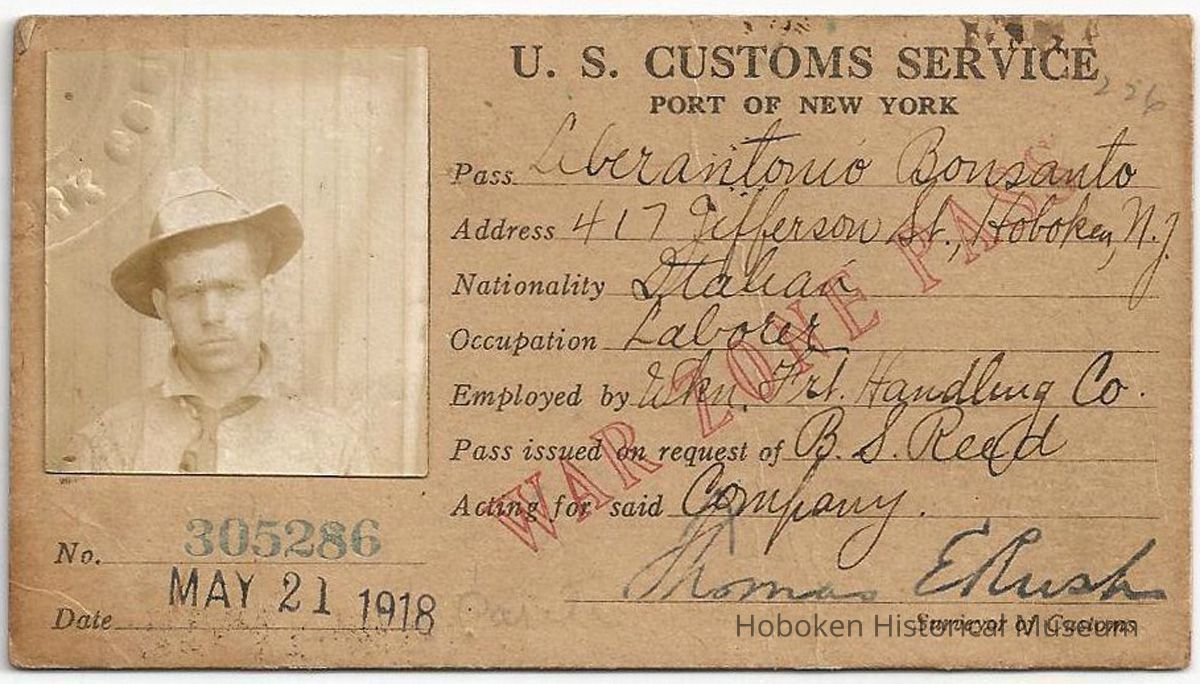 U. S. CUSTOMS SERVICE
PORT OF NEW YORK
226
Pass Liberantonio Bonsanto
Address 417 Jefferson St, Hoboken, N.J.
Nationality Italian
Occupation Laborer
Employed by Whn. Frt. Handling Co.
Pass issued on request of B. S. Reed
Acting for said Company.
WAR ZONE PASS
No. 305286
Date MAY 21 1918
Thomas E Rush
Surveyor of Customs
Hoboken Historical Museum